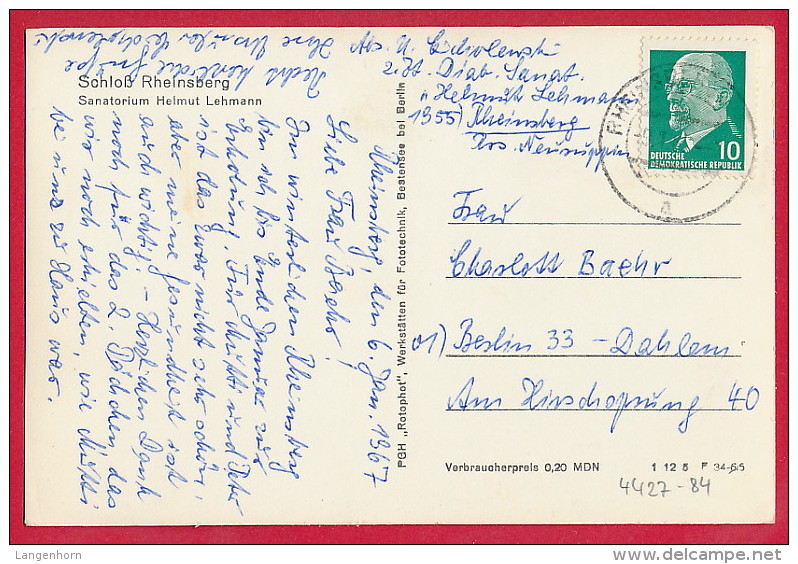 Schloß Rheinsberg
Sanatorium Helmut Lehmann
Rheinsberg, den 6. Jan. 1967
Liebe Frau Baehr!
Im winterlichen Rheinsberg
bin ich bis Ende Januar zur
Erholung. Für Mutti und Peter
ist das zwar nicht sehr schön,
aber meine Gesundheit ist
auch wichtig. - Herzlichen Dank
noch für das 2. Päckchen das
wir noch erhielten, wie Mutti
bei uns zu Haus war.
Recht herzliche Grüße
Ihre
PGH „Rotophot", Werkstätten für Fototechnik, Bestensee bei Berlin
Abs. U.
2. Zt. Diab. Sanat.
"Helmut Lehmann
1955) Rheinsberg
Krs. Neuruppin
RHEINSBERG
a
10
DEUTSCHE
DEMOKRATISCHE REPUBLIK
Frau
Charlott Baehr
01) Berlin 33 - Dahlem
Am Hirschsprung 40
Verbraucherpreis 0,20 MDN 1 12 5 F 34-65
4427-84
Langenhorn
http://www.delcampe.net